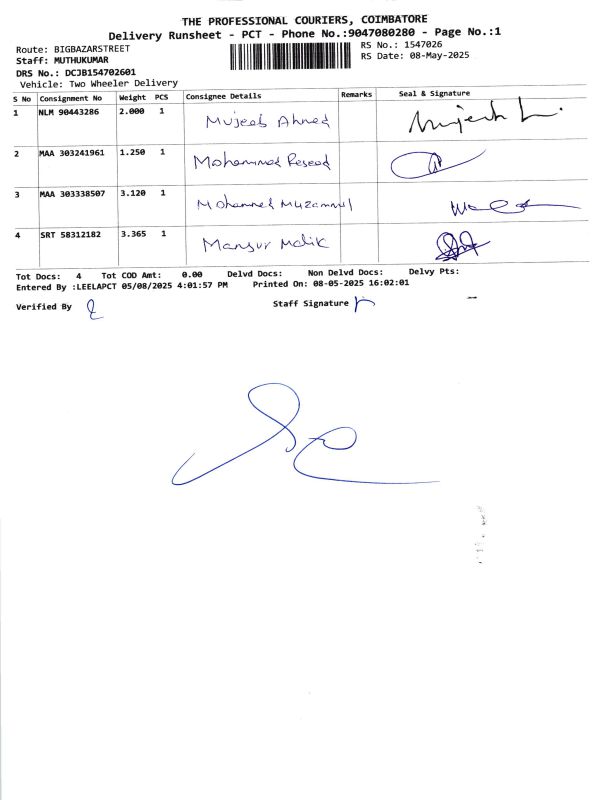 THE PROFESSIONAL COURIERS, COIMBATORE
Delivery Runsheet - PCT - Phone No.:9047080280 - Page No.:1
Route: BIGBAZARSTREET
RS No.: 1547026
Staff: MUTHUKUMAR
RS Date: 08-May-2025
DRS No.: DCJB154702601
Vehicle: Two Wheeler Delivery
S No Consignment No Weight PCS Consignee Details Remarks Seal & Signature
1 NLM 90443286 2.000 1 Mujeeb Ahmed
2 MAA 303241961 1.250 1 Mohammed Reseed
3 MAA 303338507 3.120 1 Mohammed Muzammul
4 SRT 58312182 3.365 1 Mansur Malik
Tot Docs: 4 Tot COD Amt: 0.00 Delvd Docs: Non Delvd Docs: Delvy Pts:
Entered By :LEELAPCT 05/08/2025 4:01:57 PM Printed On: 08-05-2025 16:02:01
Verified By Staff Signature